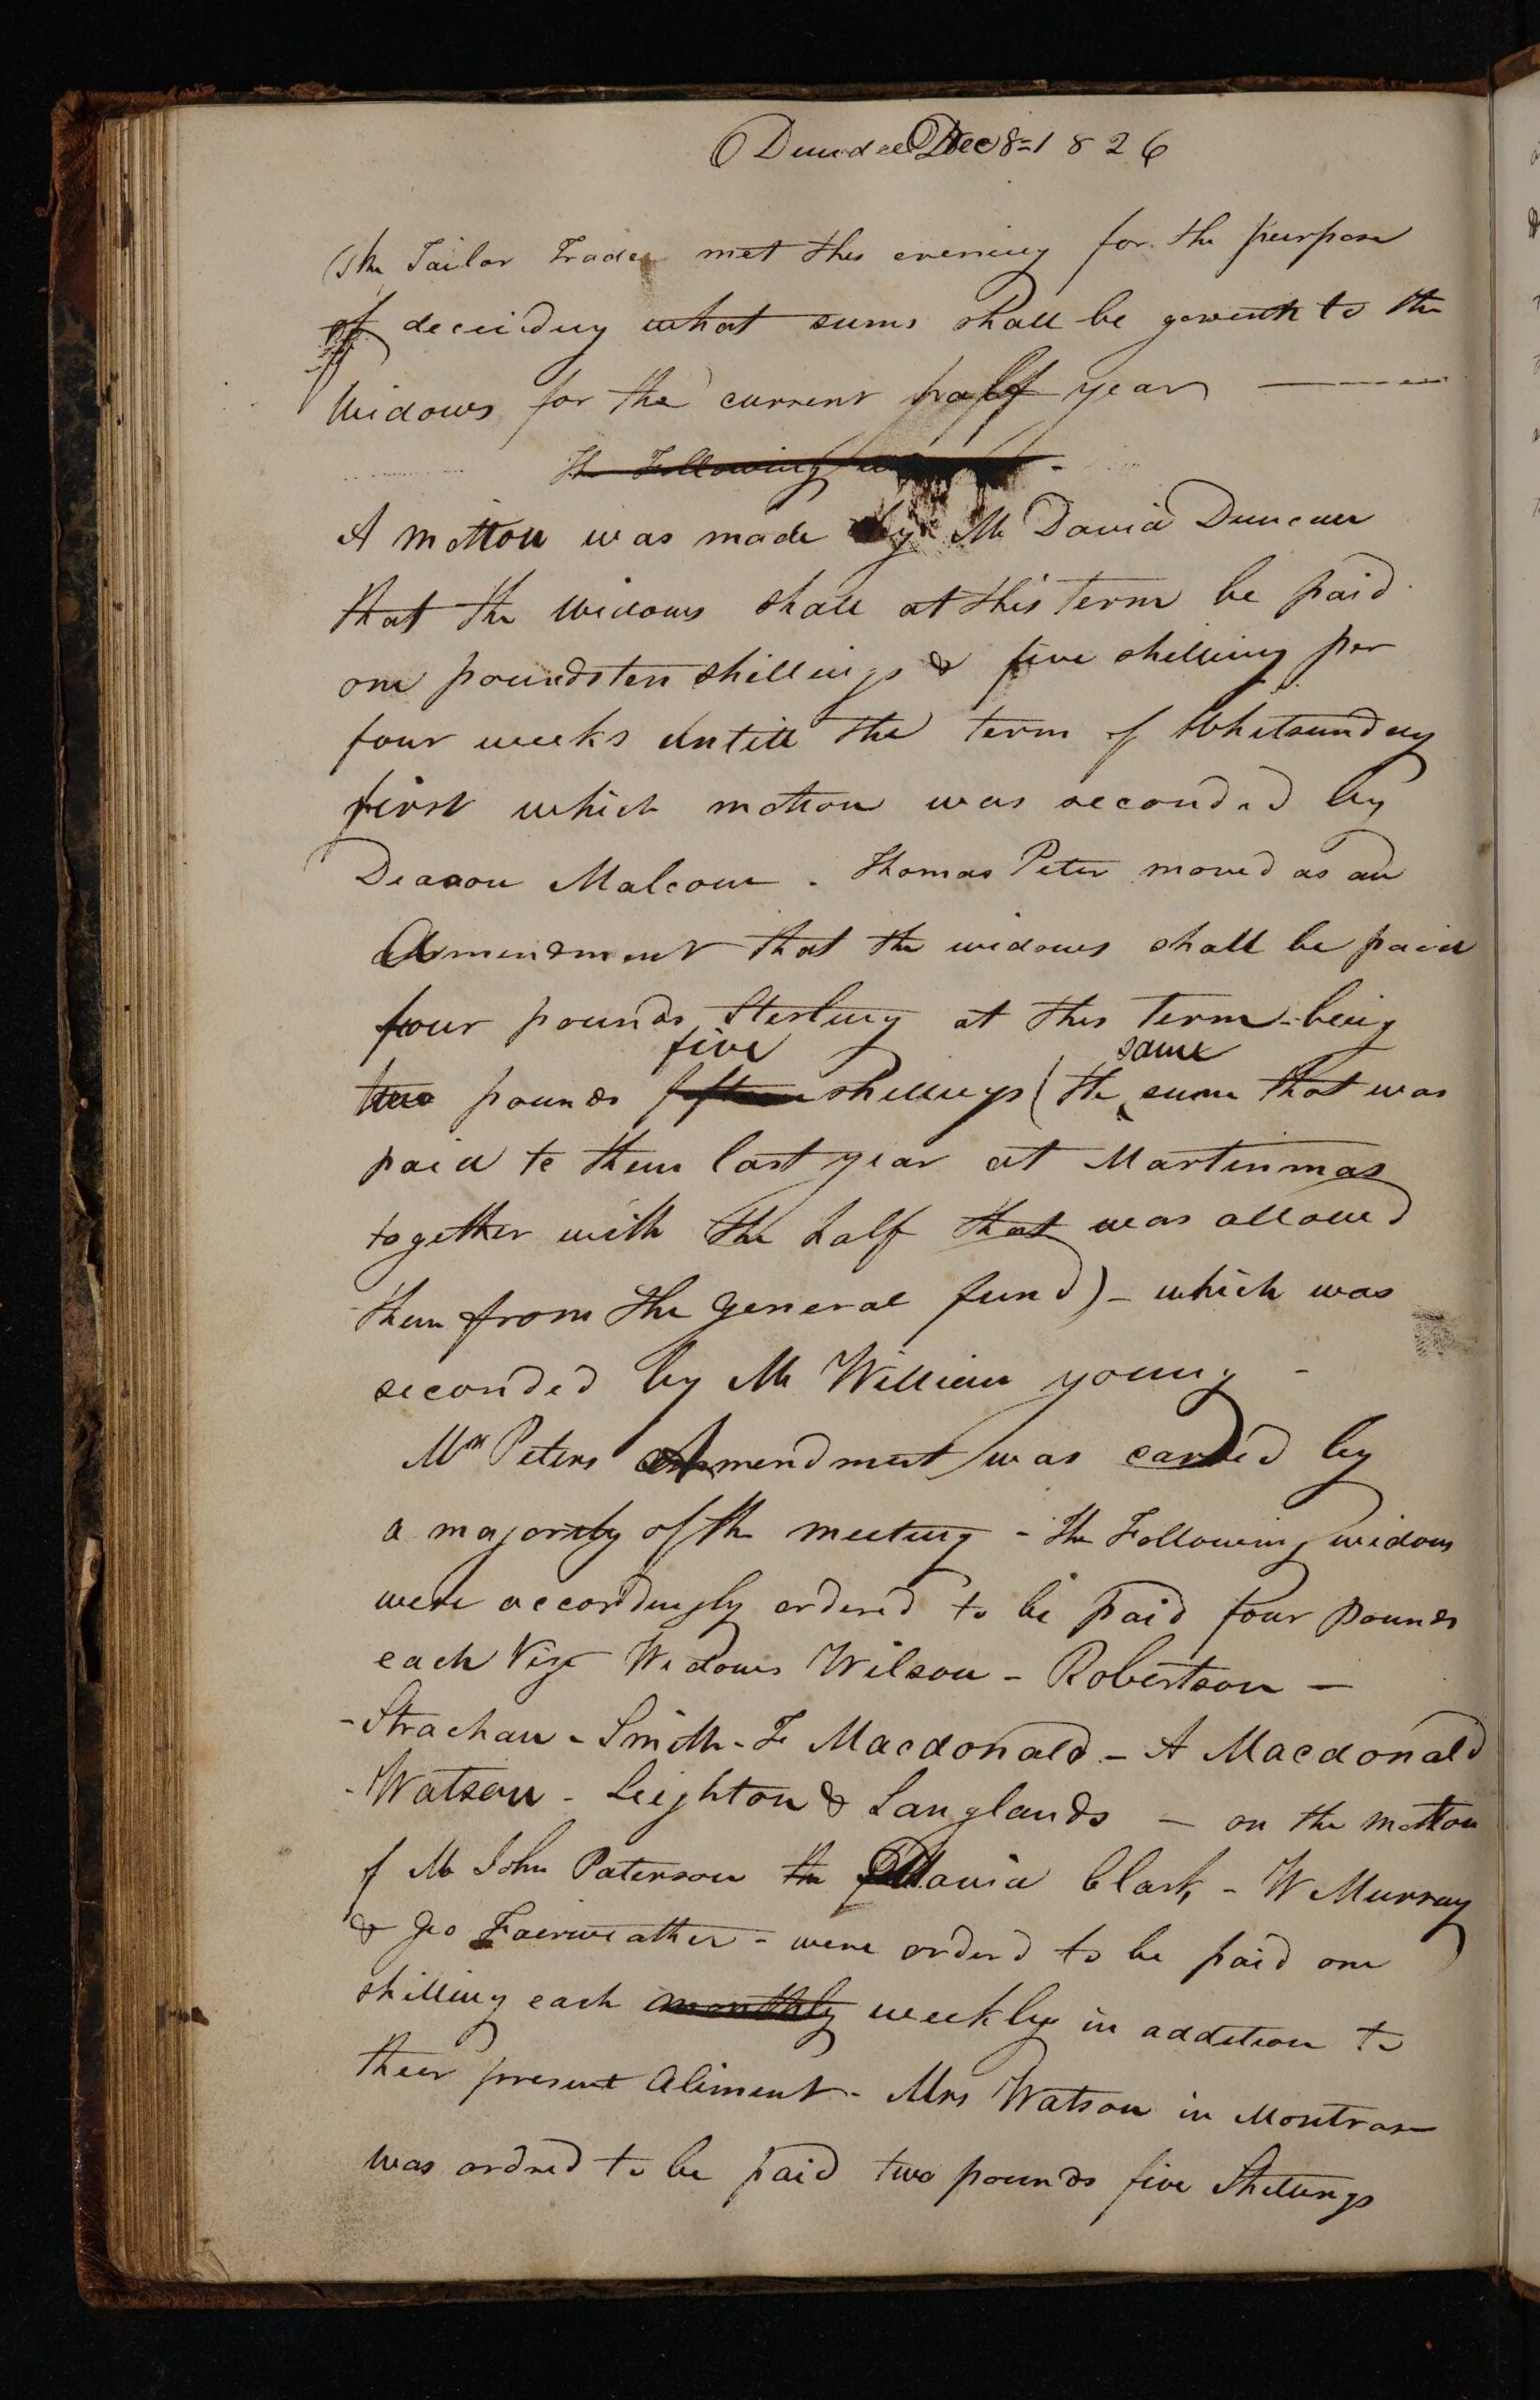 Dundee Dec 8= 1826
The Tailor Trade met this evening for the purpose
of deciding what sums shall be given to the
Widows for the current half year
The Following
A motion was made by Mr David Duncan
that the Widows shall at this term be paid
one pound ten shillings & five shilling per
four weeks untill the term of Whitsunday
first which motion was seconded by
Deacon Malcom . Thomas Peter moved as an
Amendment that the widows shall be paid
four pounds Sterling at this Term - being
five same
two pounds fifteen shillings (the sum that was
paid to them last year at Martinmas
together with the half that was allowed
them from the General fund) - which was
seconded by Mr William young -
Mr Peters Amendment was carried by
a majority of the meeting - The Following widows
were accordingly ordered to be paid four pounds
each Viz Widows Wilson - Robertson -
- Strachan - Smith - F Macdonald - A Macdonald
- Watson - Leighton & Langlands - on the motion
of Mr John Paterson the David Clark - W Murray
& Geo Fairweather - were orderd to be paid one
shilling each monthly weekly in addition to
their present Aliment - Mrs Watson in Montrose
was ordred to be paid two pounds five Shillings